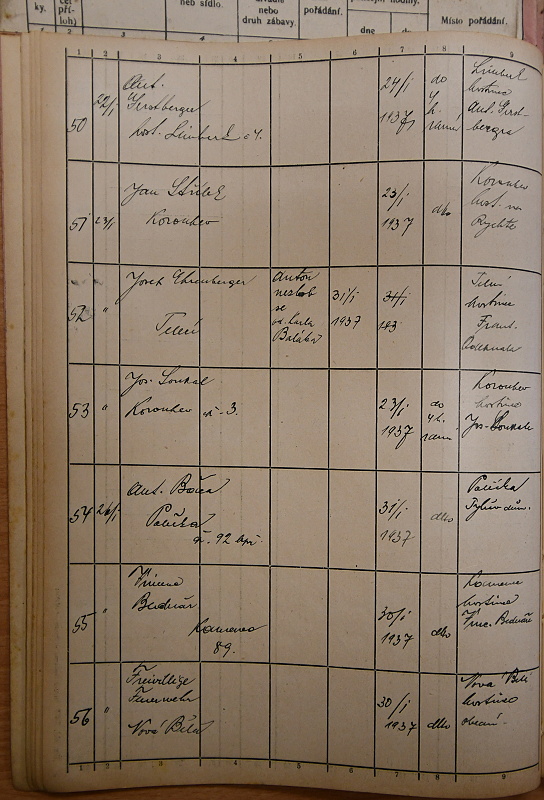 ky.
čet
příloh)
neb sídlo.
nebo
druh zábavy.
pořádání.
dne
Místo pořádání.
1 2 3 4 5 6 7 8 9
50
22/I
Ant.
Gerstberger
host. Limberk č 4.
24/I
1937
do
4
h.
ranní
Limberk
hostinec
Ant. Gerst-
bergra
51
23/I
Jan
Korouhev
23/I
1937
dto
Korouhev
host. na
Rychtě
52
"
Josef Ehrenberger
Telecí
Anton
se
od Karla
31/I
1937
31/I
193
Telecí
hostinec
Frant.
53
"
Jos. Soukal
Korouhev č. 3.
23/I
1937
do
4 h.
ranní
Korouhev
hostinec
Jos. Soukala
54
26/I
Ant.
Polička
č. 92
31/I
1937
dto
Polička
Tylův dům.
55
"
Bednář
Kamenec
89.
30/I
1937
dto
Kamenec
hostinec
Vinc. Bednáře
56
"
Freiwillige
Feuerwehr
Nová Bělá
30/I
1937
dto
Nová Bělá
hostinec
obecní.
1 2 3 4 5 6 7 8 9